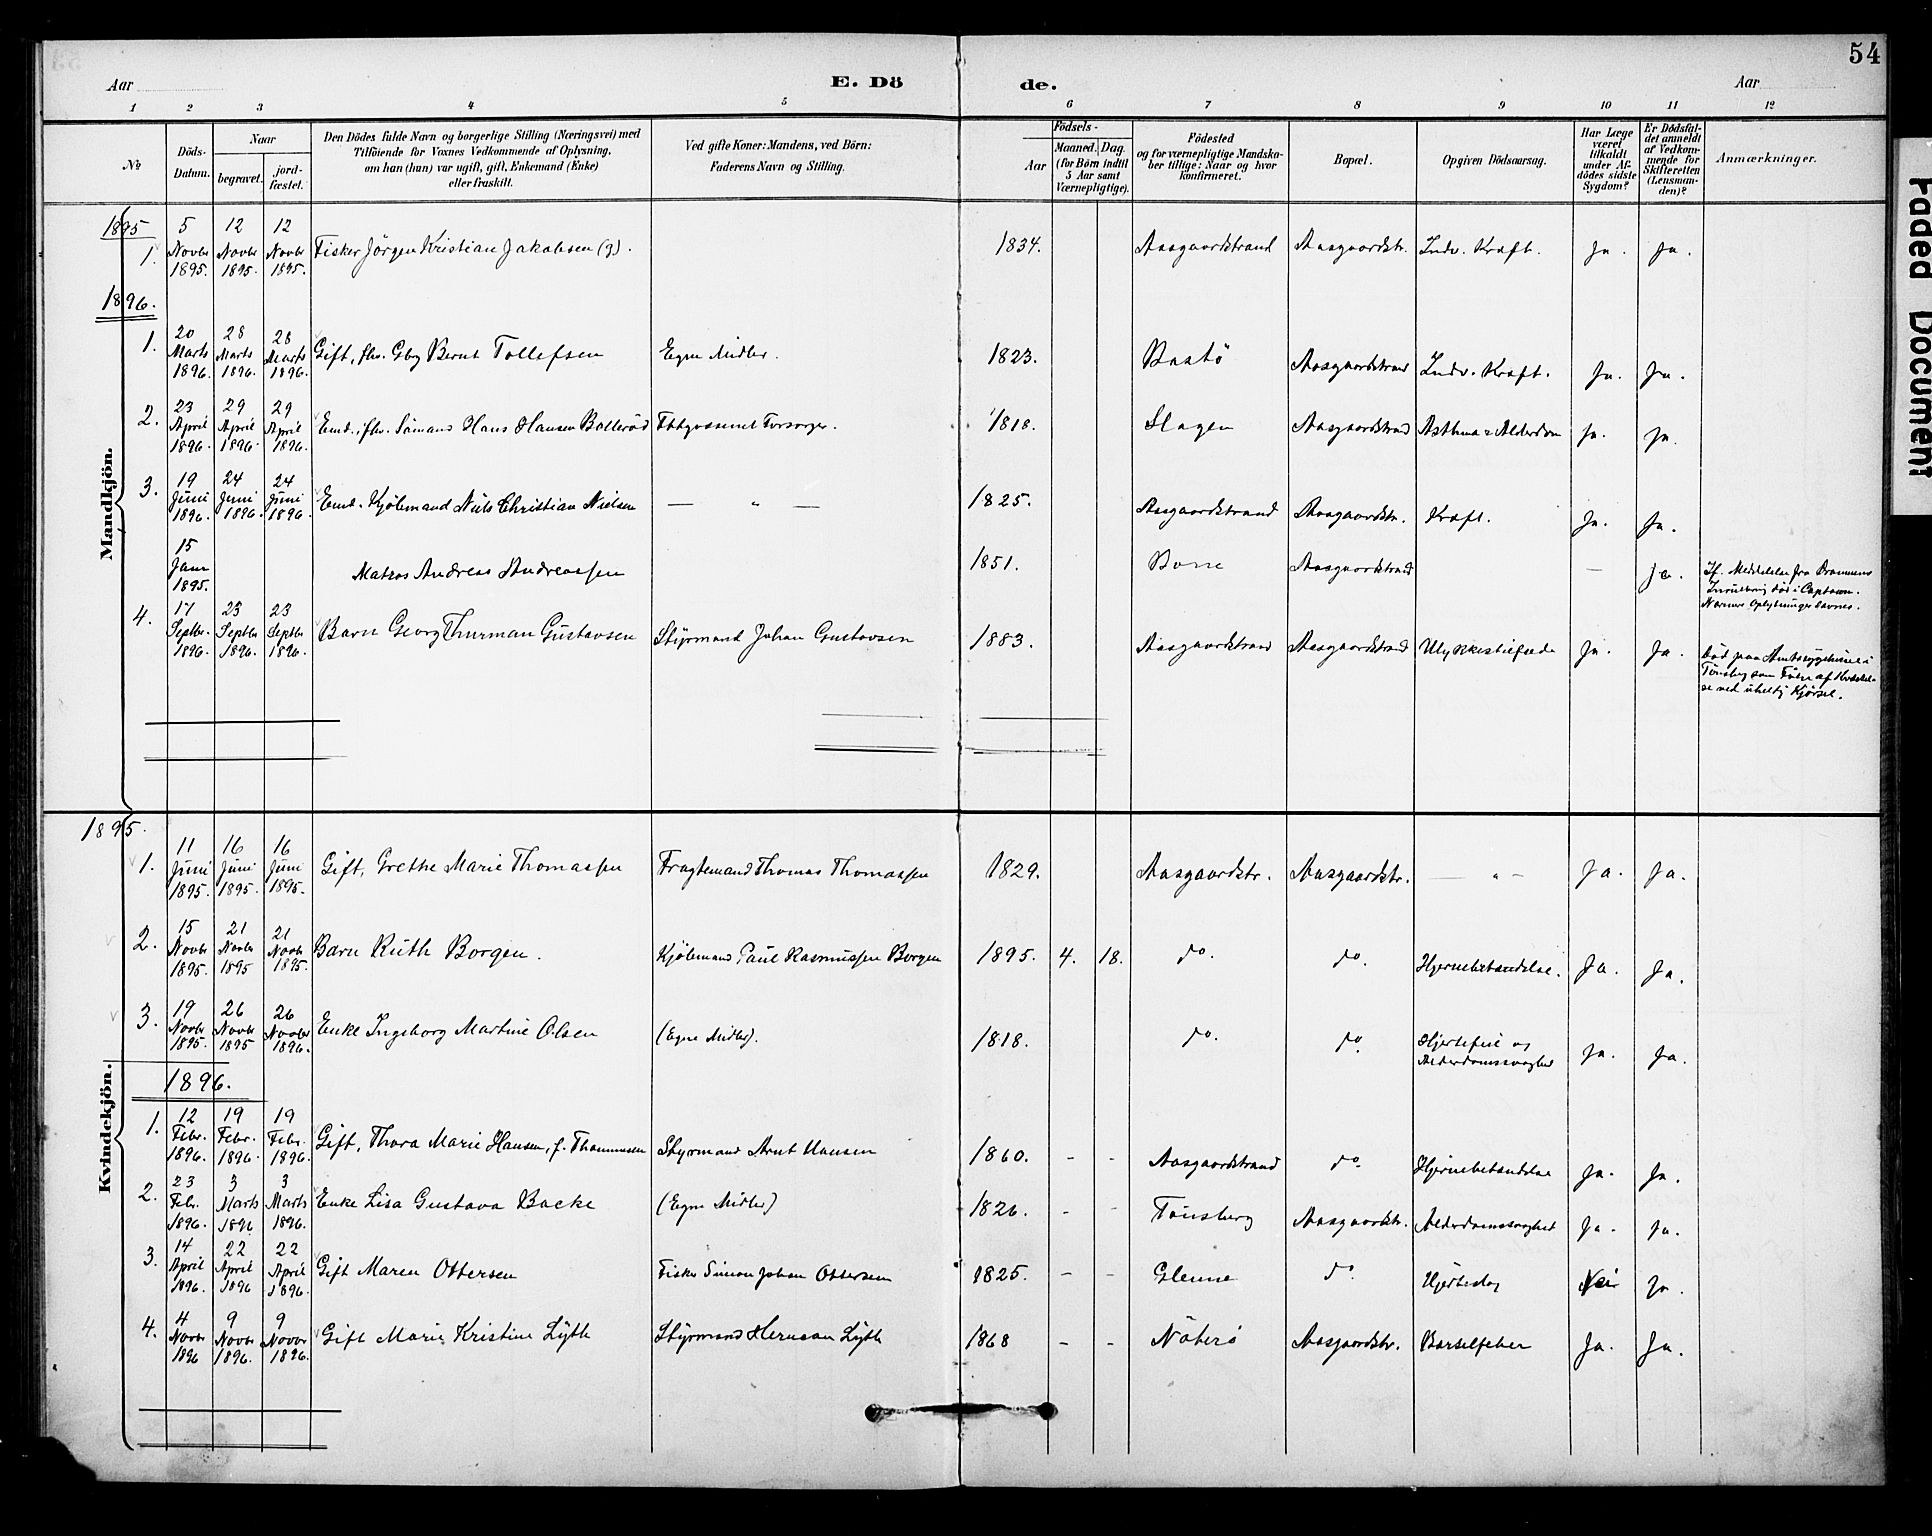 54
Aar E. Dö de. Aar
1 2 3 4 5 6 7 8 9 10 11 12
No
Döds-Datum.
Naar begravet. jordfæstet.
Den Dödes fulde Navn og borgerlige Stilling (Næringsvei) med
Tilföiende for Voxnes Vedkommende af Oplysning,
om han (hun) var ugift, gift, Enkemand (Enke)
eller fraskilt.
Ved gifte Koner: Mandens, ved Börn:
Faderens Navn og Stilling.
Födsels-
Aar Maaned. Dag.
(for Börn indtil
5 Aar samt
Værnepligtige).
Födested
og for værnepligtige Mandska-
ber tillige: Naar og hvor
konfirmeret.
Bopæl.
Opgiven Dödsaarsag.
Har Læge
været
tilkaldt
under Af-
dödes sidste
Sygdom?
Er Dödsfal-
det anmeldt
af Vedkom-
mende for
Skifteretten
(Lensman-
den)?
Anmærkninger.
Mandkjön.
1895
1. 5 Novbr 1895. 12 Novbr 1895. 12 Novbr 1895. Fisker Jörgen Kristian Jakobsen (g). 1834. Aasgaardstrand Aasgaardstr. Indv. Kræft. Ja. Ja.
1896.
1. 20 Marts 1896. 28 Marts 1896. 28 Marts 1896. Gift, fhv. Gbg Bernt Tollefsen Egne Midler. 1823. Bastö Aasgaardstrand Indv. Kræft. Ja. Ja.
2. 23 April 1896. 29 April 1896. 29 April 1896. Emd., fhv. Sömand Hans Hansen Bolleröd Fattigvæsenet Forsorger. 1818. Slagen Aasgaardstrand Asthma & Alderdom Ja. Ja.
3. 19 Juni 1896. 24 Juni 1896. 24 Juni 1896. Emd. Kjöbmand Niels Christian Nielsen — " — 1825. Aasgaardstrand Aasgaardstr. Kræft. Ja. Ja.
15 Janr 1895. Matros Andreas Andreassen 1851. Borre Aasgaardstrand — Ja. If. Meddelelse fra Drammens
död i Captown.
Nærmere Oplysninger savnes.
4. 17 Septbr. 1896. 23 Septbr 1896. 23 Septbr 1896. Barn Georg Thurman Gustavsen Styrmand Johan Gustavsen 1883. Aasgaardstrand Aasgaardstrand Ulykkestilfælde Ja. Ja. Död paa Amtssygehuset i
Tönsberg som Fölge af Kvæstel-
se ved uheldig Kjörsel.
Kvindekjön.
1895.
1. 11 Juni 1895. 16 Juni 1895. 16 Juni 1895. Gift, Grethe Marie Thomassen Fragtemand Thomas Thomassen 1829. Aasgaardstr. Aasgaardstr. — " — Ja. Ja.
2. 15 Novbr 1895. 21 Novbr 1895 21 Novbr 1895. Barn Ruth Borgen. Kjöbmand Paul Rasmussen Borgen 1895. 4. 18. do. do. Hjernebetændelse. Ja. Ja.
3. 19 Novbr 1895. 26 Novbr 1895 26 Novbr 1896. Enke Ingeborg Martine Olsen (Egne Midler). 1818. do. do. Hjertefeil og
Alderdomssvaghed Ja. Ja.
1896.
1. 12 Febr. 1896. 19 Febr. 1896. 19 Febr. 1896. Gift, Thora Marie Hansen, f. Thommesen Styrmand Arnt Hansen 1860. - - Aasgaardstrand do. Hjernebetændelse Ja. Ja.
2. 23 Febr. 1896. 3 Marts 1896 3 Marts 1896. Enke Lisa Gustava Backe (Egne Midler) 1826. - - Tönsberg Aasgaardstr. Alderdomssvaghed Ja. Ja.
3. 14 April 1896. 22 April 1896 22 April 1896. Gift Maren Ottersen Fisker Simon Johan Ottersen 1825. - - Glenne do. Hjerteslag Nei Ja.
4. 4 Novbr 1896 9 Novbr 1896. 9 Novbr 1896. Gift Marie Kristine Lyth Styrmand Herman Lyth 1868 - - Nöterö Aasgaardstr. Barselfeber Ja. Ja.
Faded Document